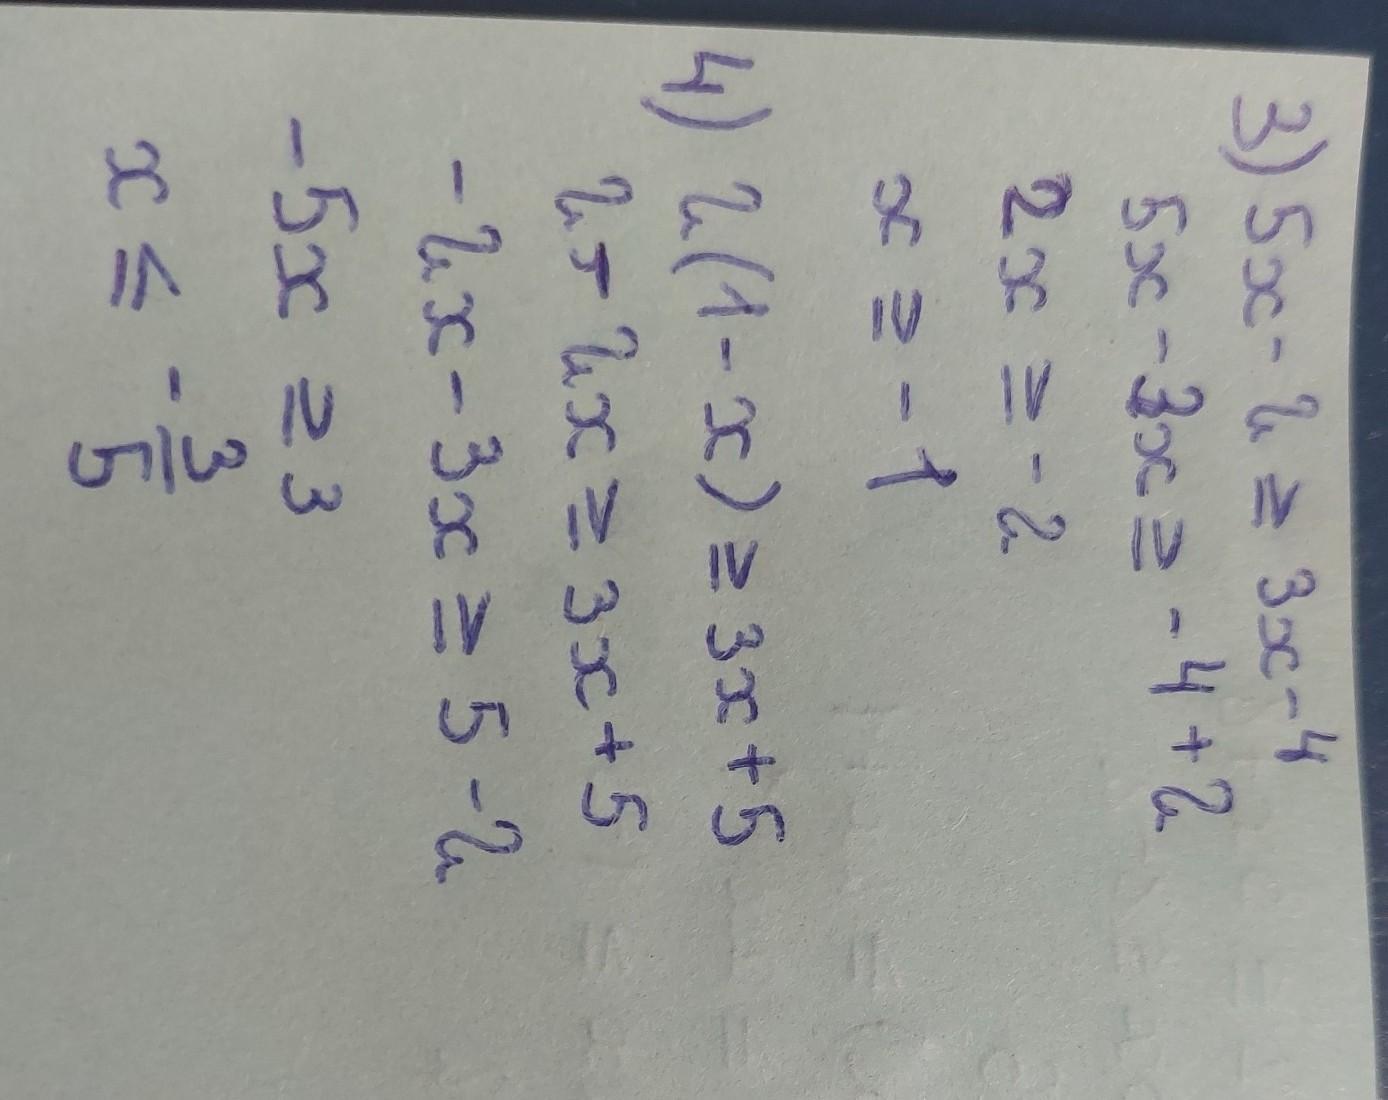 3) 5x - 2 ≥ 3x - 4
5x - 3x ≥ -4 + 2
2x ≥ -2
x ≥ -1
4) 2(1 - x) ≥ 3x + 5
2 - 2x ≥ 3x + 5
-2x - 3x ≥ 5 - 2
-5x ≥ 3
x ≤ -3/5